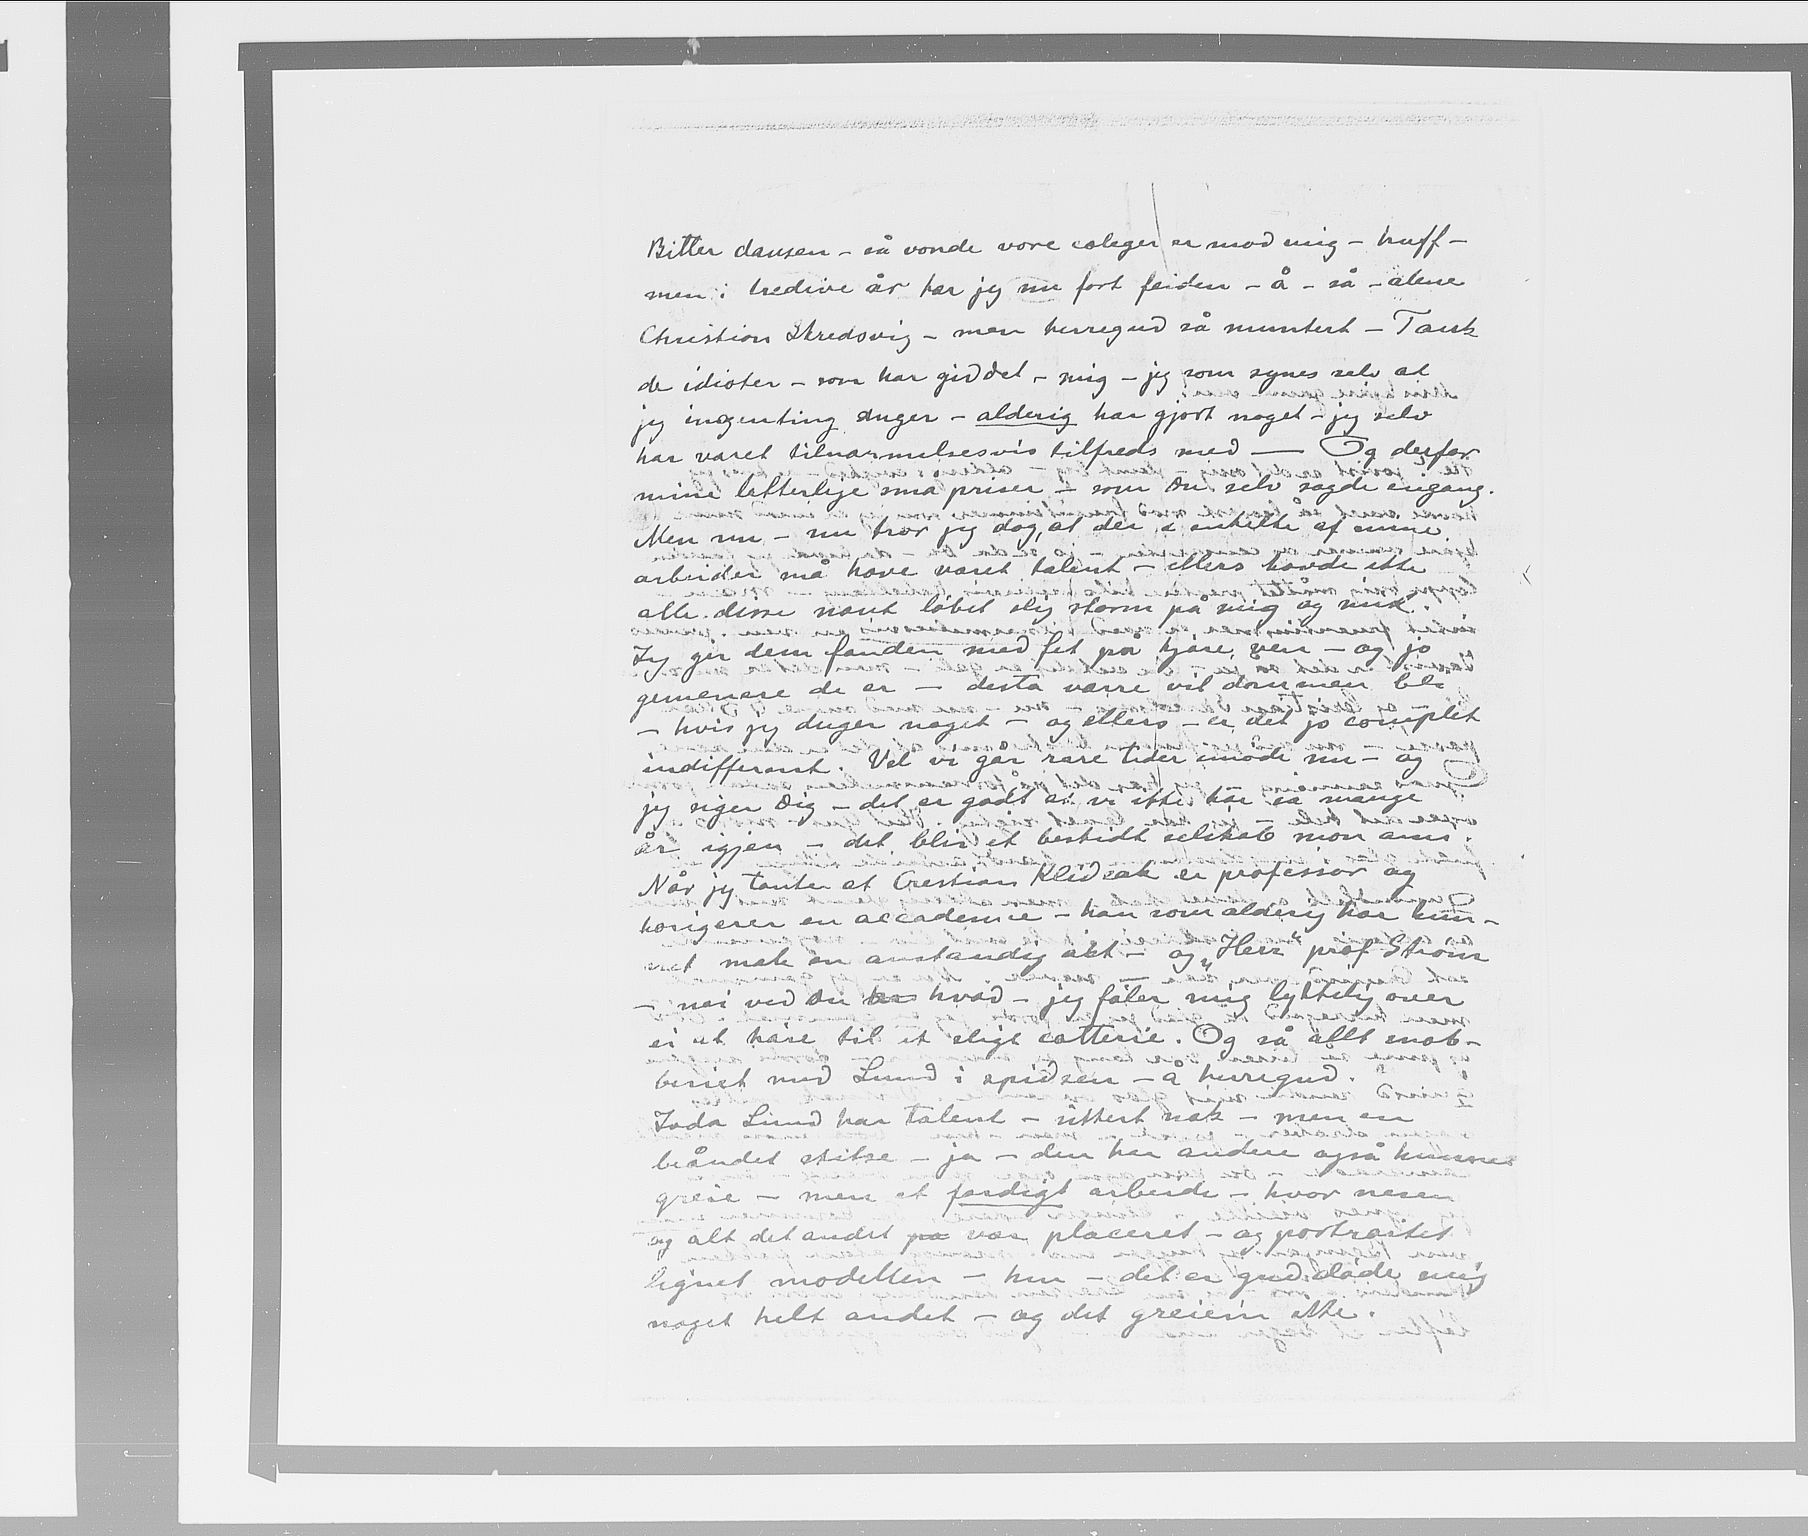 Bitter dansen – så vonde vore coleger er mod mig – huff –
men i tredive år har jeg nu ført feiden – å – så – alene
Christian Skredsvig – men herregud så muntert – Tænk
de idioter – som har giddet – mig – jeg som synes selv at
jeg ingenting duger – alderig har gjort noget – jeg selv
har været tilnærmelsesvis tilfreds med — Og derfor
mine latterlige små priser – som Du selv sagde engang.
Men nu – nu tror jeg dog, at der i enkelte af mine
arbeider må have været talent – ellers havde ikke
alle disse naut løbet slig storm på mig og mit.
Jeg gir dem fanden med fet på kjære ven – og jo
gemenere de er – desto værre vil dommen bli
– hvis jeg duger noget – og ellers – er det jo complet
indifferant. Vel vi går rare tider imøde nu – og
jeg siger Dig – det er godt at vi ikke har så mange
år igjen – det blir et beskidt selskab mon ami.
Når jeg tænker at Crestian er professor og
korigerer en accademie – han som alderig har kun-
net male en anstændig akt – og „Herr“ prof Strøm
– nei ved Du hvad – jeg føler mig lykkelig over
ei at høre til et sligt cotterie. Og så allt snob-
beriet med Lund i spidsen – å herregud.
Joda Lund har talent – sikkert nok – men en
beåndet skitse – ja – den har andre også kunne
greie – men et færdigt arbeide – hvor nesen
og alt det andet på var placeret – og portraitet
lignet modellen – hm – det er gud døde mig
noget helt andet – og det greiein ikke.